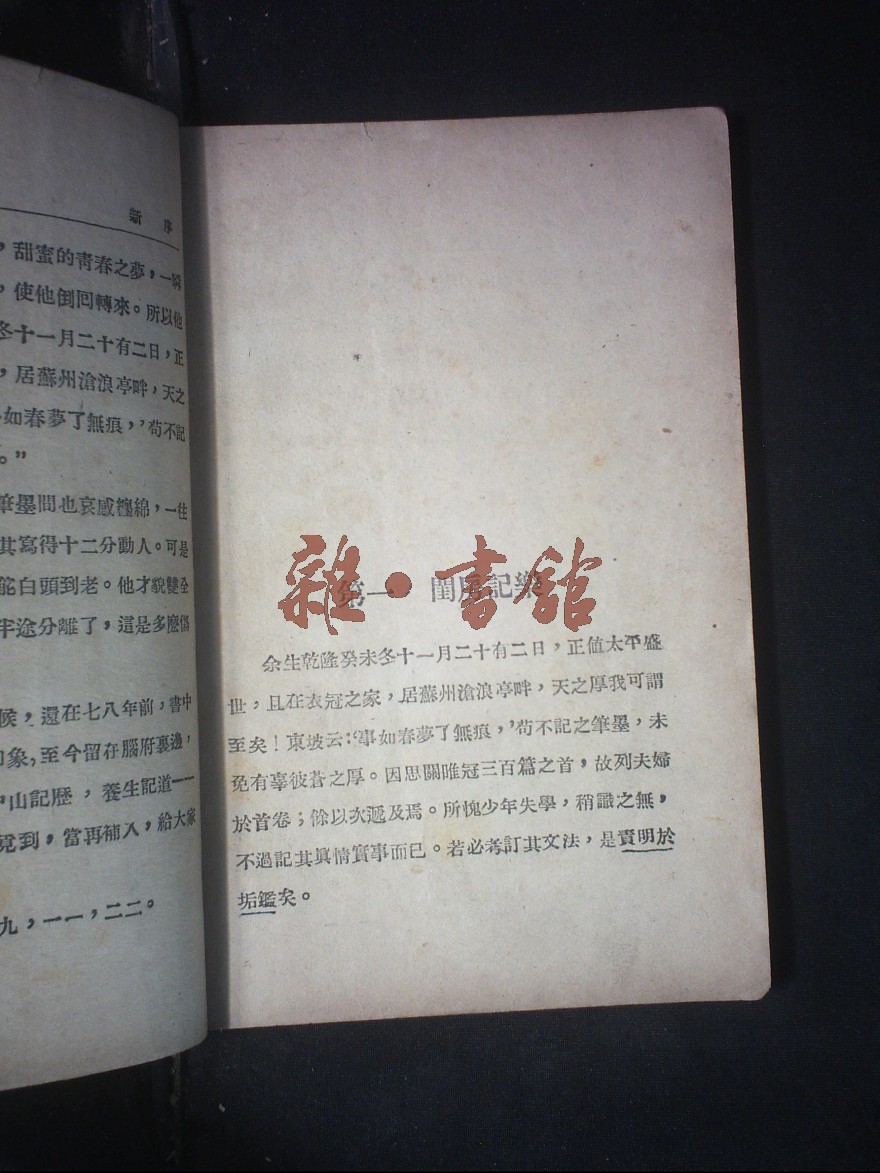 新序
，甜蜜的靑春之夢，一瞬
，使他倒回轉來。所以他
冬十一月二十有二日，正
，居蘇州滄浪亭畔，天之
如春夢了無痕，’苟不記
。”
筆墨間也哀感纏綿，一往
其寫得十二分動人。可是
能白頭到老。他才貌雙全
半途分離了，這是多麽傷
候，還在七八年前，書中
印象，至今留存腦府裏邊，
山記歷，養生記道——
覓到，當再補入，給大家
九，一一，二二。
雜·書舘
第一 閨房記樂
余生乾隆癸未冬十一月二十有二日，正値太平盛
世，且在衣冠之家，居蘇州滄浪亭畔，天之厚我可謂
至矣！東坡云：‘事如春夢了無痕，’苟不記之筆墨，未
免有辜彼蒼之厚。因思關雎冠三百篇之首，故列夫婦
於首卷；餘以次遞及焉。所愧少年失學，稍識之無，
不過記其眞情實事而已。若必考訂其文法，是責明於
垢鑑矣。